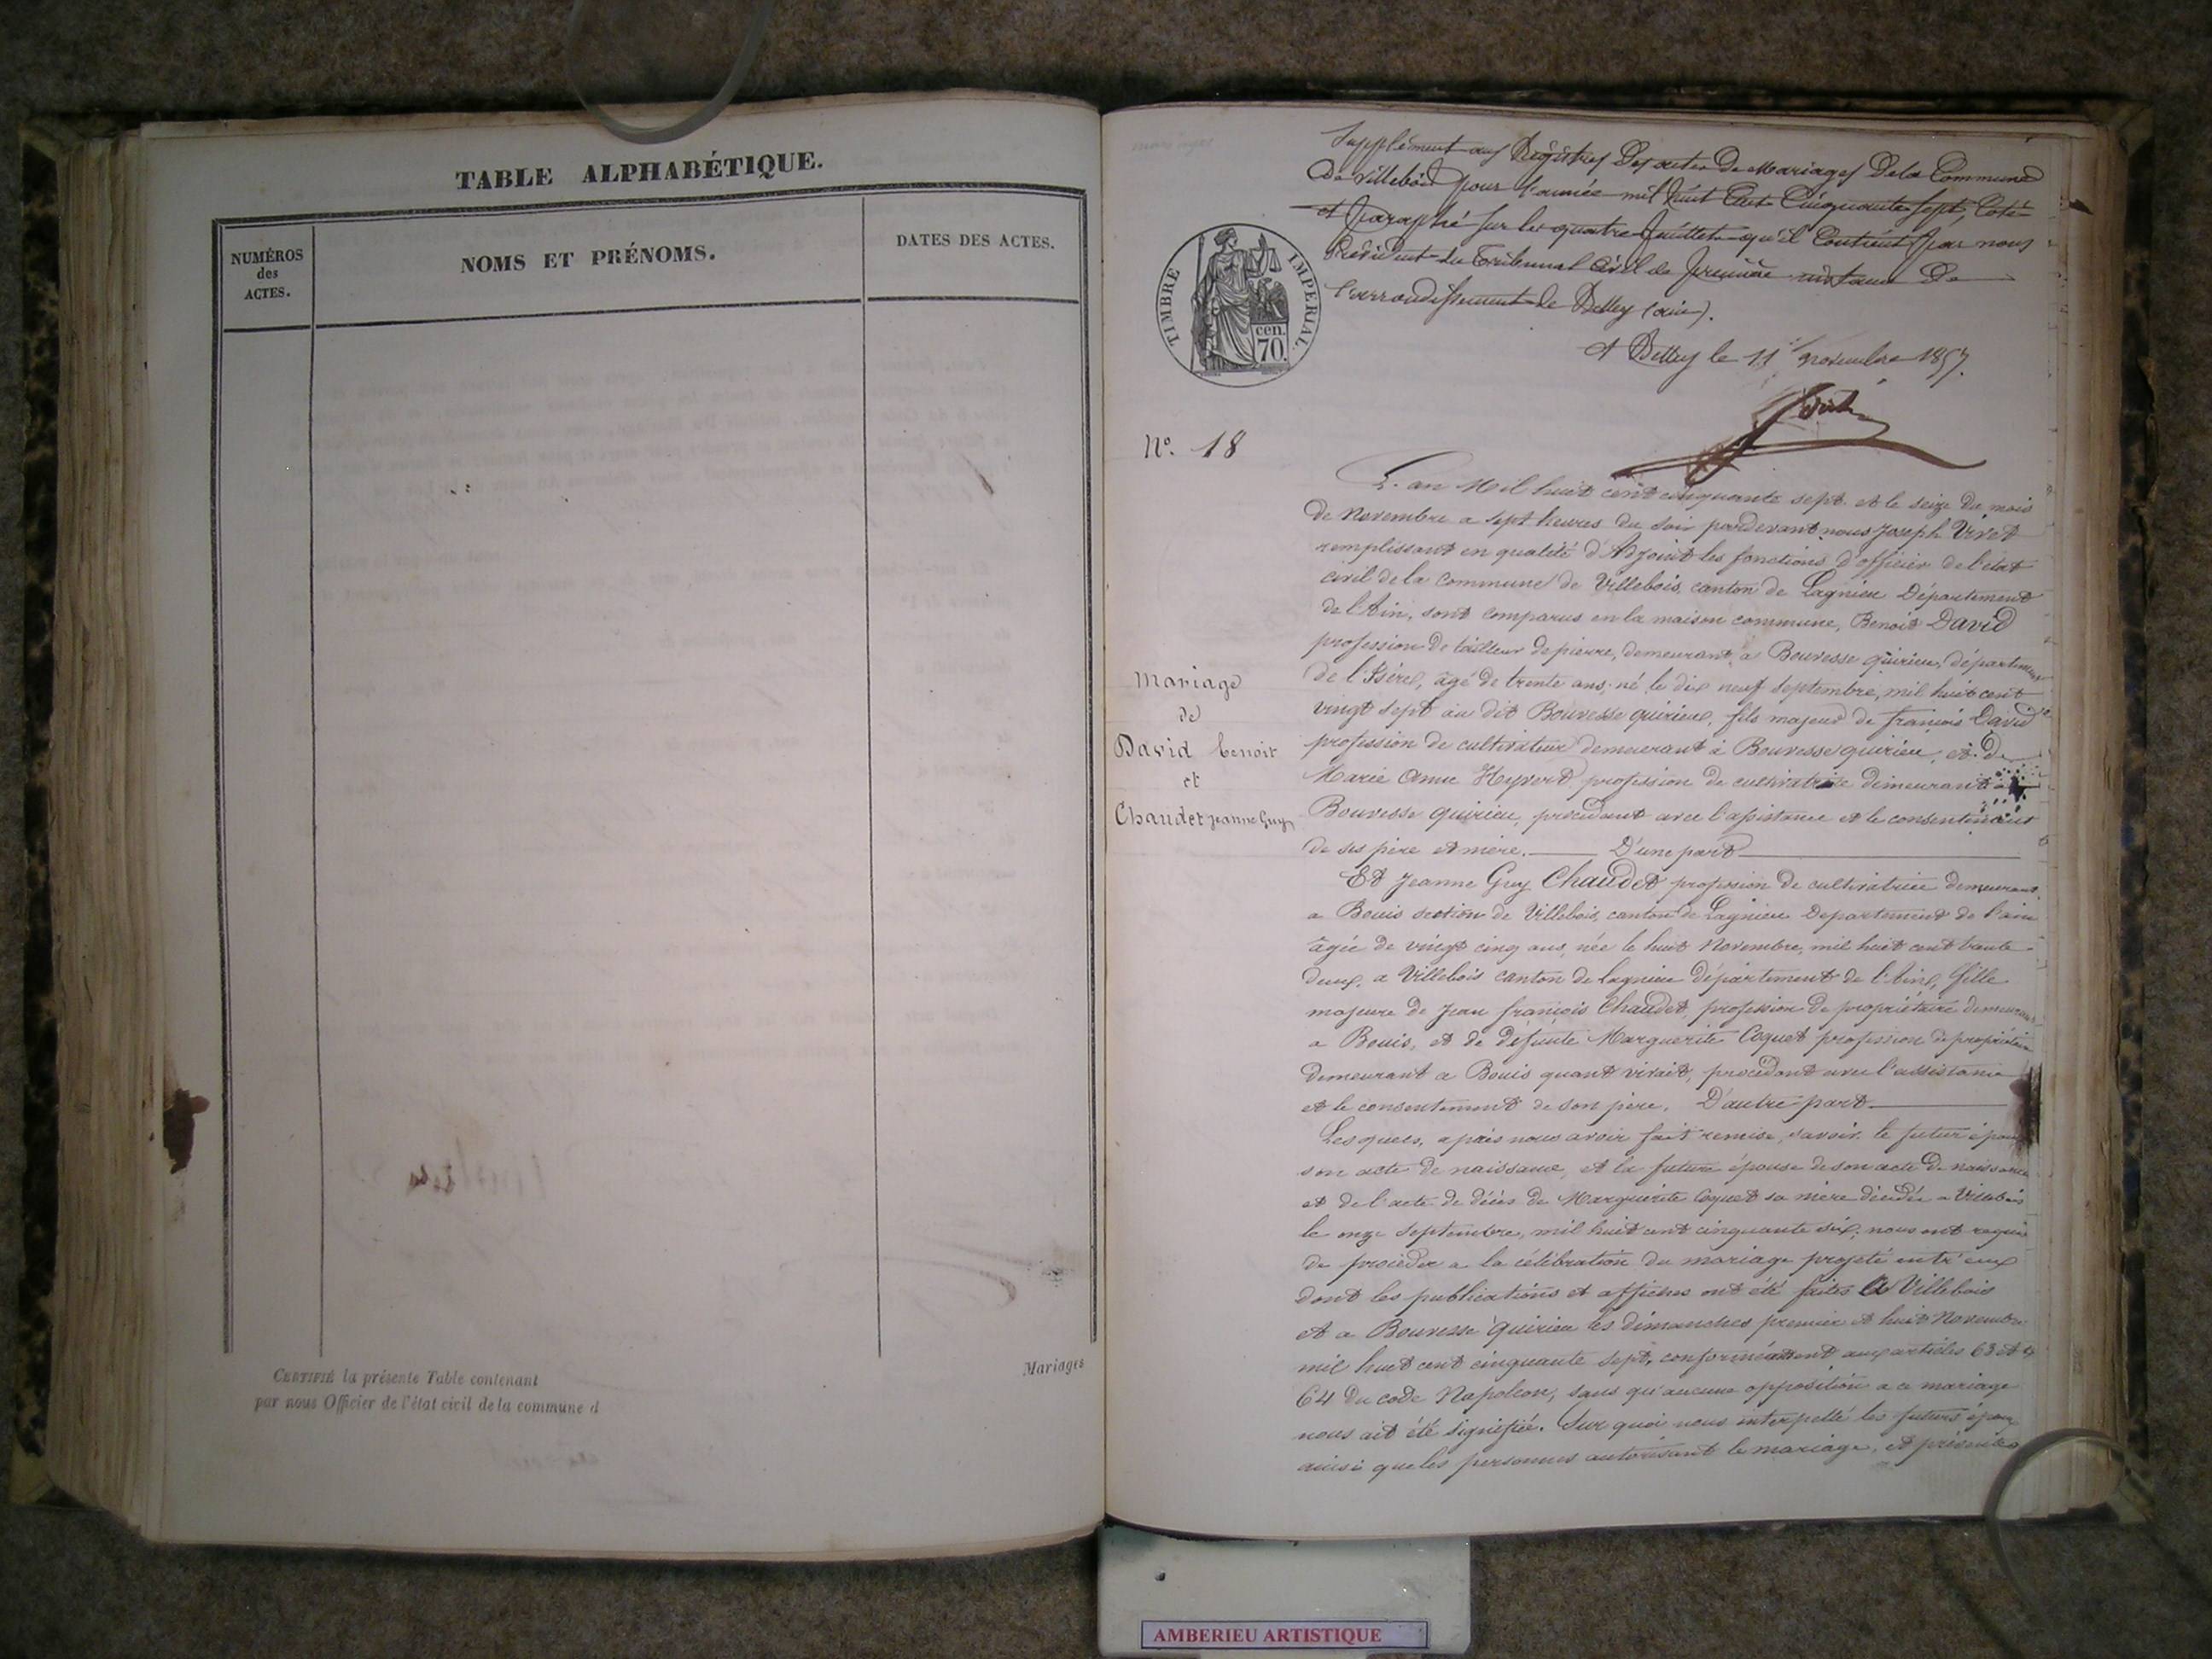 TABLE ALPHABÉTIQUE.
NUMÉROS
des
ACTES.
NOMS ET PRÉNOMS.
DATES DES ACTES.
CERTIFIÉ la présente Table contenant
par nous Officier de l'état civil de la commune d
Mariages
Supplément aux Registres Des actes De Mariages De la Commune
De Villebois pour l'année mil huit Cent Cinquante sept, Coté
et Paraphé sur les quatre feuillets qu'il Contient par nous
Président du Tribunal Civil de première instance De
l'arrondissement de Belley (ain).
A Belley le 11 novembre 1857.
TIMBRE IMPERIAL.
cen.
70.
N°. 18
Mariage
de
David benoit
et
Chaudet jeanne Guy
L'an Mil huit cent cinquante sept et le seize du mois
de Novembre a sept heures du soir pardevant nous Joseph Viret
remplissant en qualité d'Adjoint les fonctions d'officier de l'état
civil de la commune de Villebois, canton de Lagnieu Département
de l'Ain, sont comparus en la maison commune, Benoit David
profession de tailleur de pierre, demeurant a Bouvesse quirieu, département
de l'Isère, âgé de trente ans, né le dix neuf septembre, mil huit cent
vingt sept au dit Bouvesse quirieu, fils majeur de françois David
profession de cultivateur demeurant à Bouvesse quirieu, et de
Marie Anne Heyvert profession de cultivatrice demeurant a
Bouvesse quirieu, procédant avec l'assistance et le consentement
de ses père et mère. D'une part
Et Jeanne Guy Chaudet profession de cultivatrice demeurant
a Bouis section de Villebois, canton de Lagnieu Departement de l'ain
âgée de vingt cinq ans, née le huit Novembre, mil huit cent trente
deux, a Villebois canton de lagnieu département de l'Ain, fille
majeure de Jean françois Chaudet, profession de propriétaire demeurant
a Bouis, et de défunte Marguerite Coquet profession de propriétaire
demeurant a Bouis quant vivait, procédant avec l'assistance
et le consentement de son père. D'autre part
Lesquels, après nous avoir fait remise, savoir, le futur époux
son acte de naissance, et la future épouse de son acte de naissance
et de l'acte de décès de Marguerite Coquet sa mère décédée a Villebois
le onze septembre, mil huit cent cinquante six, nous ont requis
de procéder a la célébration du mariage projeté entr'eux
dont les publications et affiches ont été faites a Villebois
et a Bouvesse quirieu les dimanches premier et huit Novembre
mil huit cent cinquante sept, conformément aux articles 63 et
64 du code Napoléon, sans qu'aucune opposition a ce mariage
nous ait été signifiée. Sur quoi nous interpellé les futurs époux
ainsi que les personnes autorisant le mariage, et présentes
AMBERIEU ARTISTIQUE